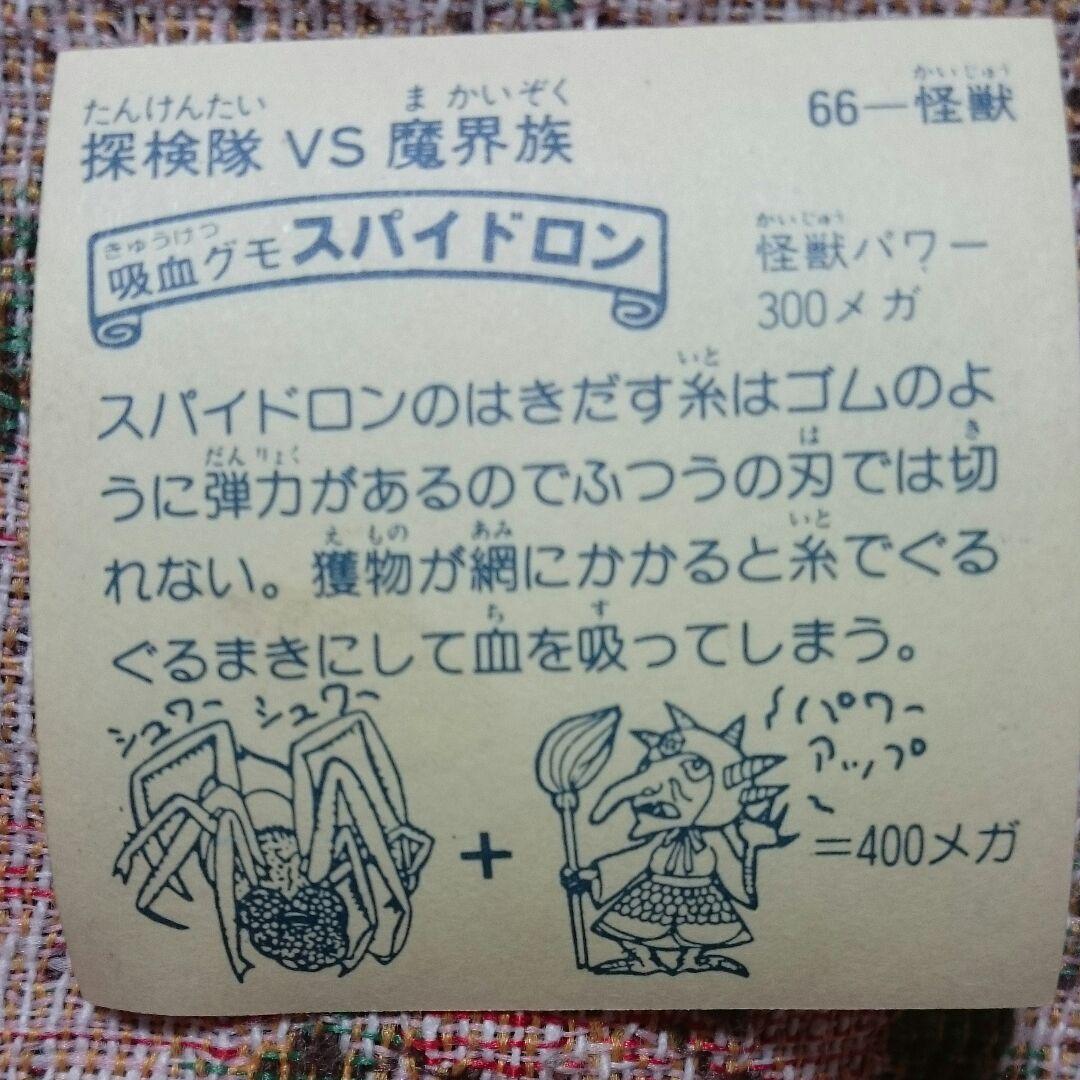 たんけんたい まかいぞく
探検隊 VS 魔界族
かいじゅう
66―怪獣
きゅうけつ
吸血グモスパイドロン
かいじゅう
怪獣パワー
300メガ
いと
スパイドロンのはきだす糸はゴムのよ
だんりょく は き
うに弾力があるのでふつうの刃では切
えもの あみ いと
れない。獲物が網にかかると糸でぐる
ち す
ぐるまきにして血を吸ってしまう。
シュワー シュワー
パワー
アップ
+
=400メガ